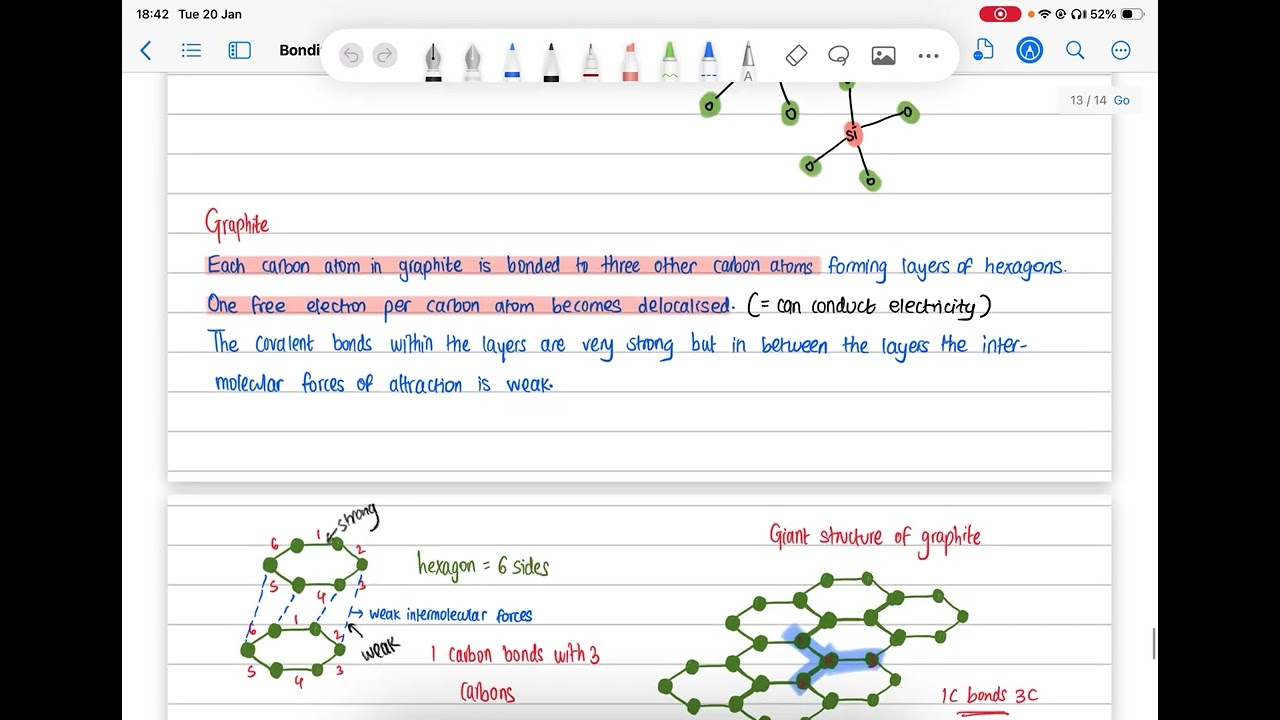 18:42 Tue 20 Jan
52%
Bondi
A
13 / 14 Go
o o o
si
o o
Graphite
Each carbon atom in graphite is bonded to three other carbon atoms forming layers of hexagons.
One free electron per carbon atom becomes delocalised. (= can conduct electricity)
The covalent bonds within the layers are very strong but in between the layers the inter-
molecular forces of attraction is weak.
strong
6 1 2
5 4 3
hexagon = 6 sides
Giant structure of graphite
weak intermolecular forces
6 1 2
weak
5 4 3
1 carbon bonds with 3
carbons
1C bonds 3C